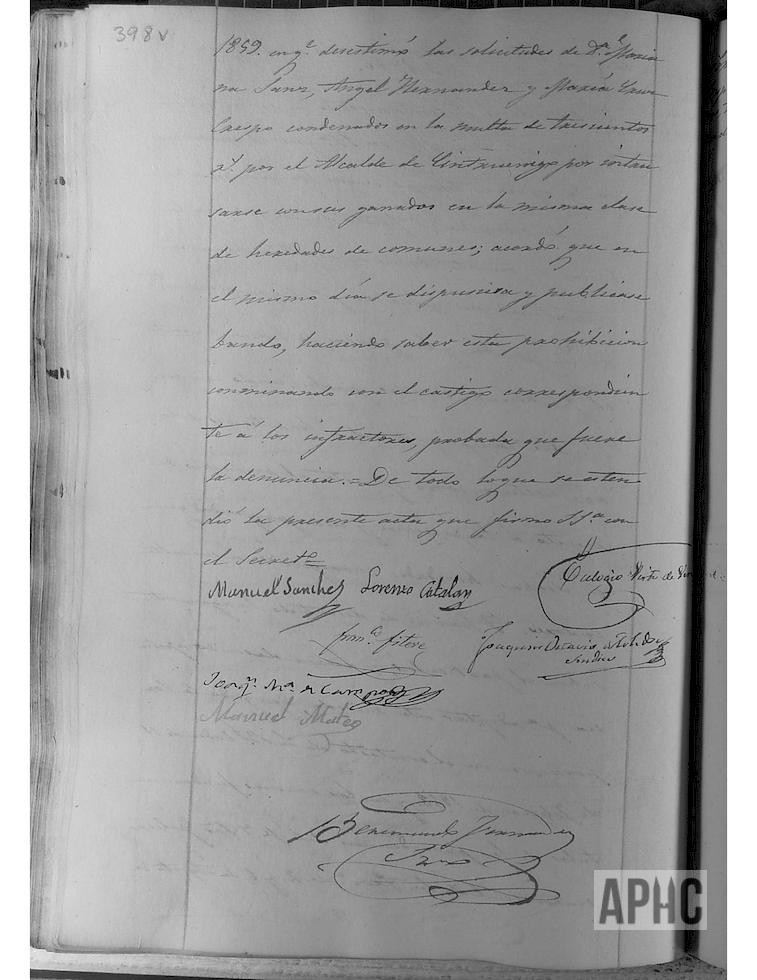 398v
1859. en q.e desestimó las solicitudes de D.ª Maria
na Sanz, Angel Hernandez y Maria Cruz
Crespo condenados en la multa de trescientos
r.s por el Alcalde de Cintruenigo por
sarse con sus ganados en la misma clase
de heredades de comunes; acordó que en
el mismo dia se dispusiera y publicase
bando, haciendo saber esta prohibicion
conminando con el castigo correspondien
te á los infractores, probada que fuere
la denuncia.= De todo lo que se esten
dió la presente acta que firmó S.Sª con
el Secret.º=
Manuel Sanchez Lorenzo Catalan
Eulogio
Fran.co Fitero
Joaquin Octavio de Toledo
Sindico
Joaq.n M.ª de Campos
Manuel Mateo
Fernandez
APHC